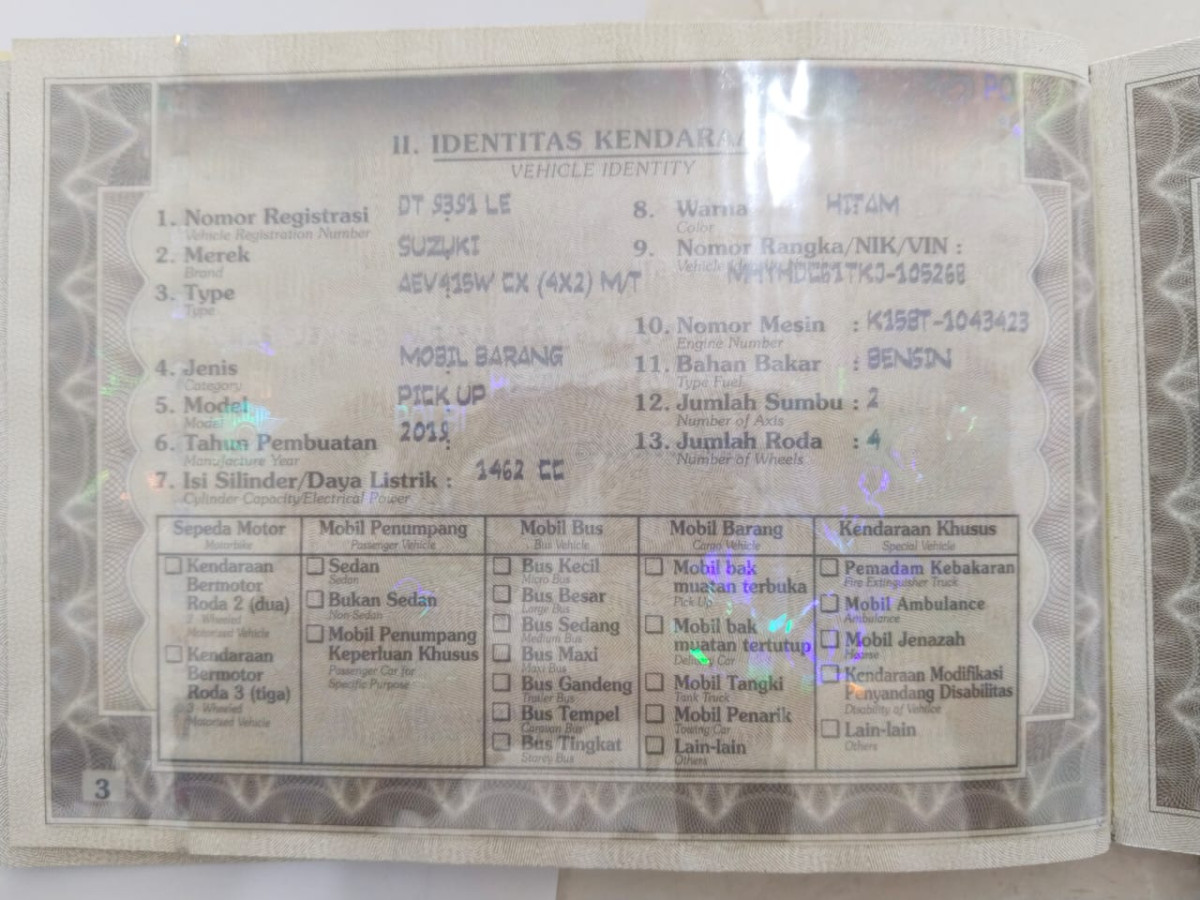 II. IDENTITAS KENDARA
VEHICLE IDENTITY
1. Nomor Registrasi DT 9391 LE
Vehicle Registration Number
2. Merek SUZUKI
Brand
3. Type AEV415W CX (4X2) M/T
Type
4. Jenis MOBIL BARANG
Category
5. Model PICK UP
Model
6. Tahun Pembuatan 2019
Manufacture Year
7. Isi Silinder/Daya Listrik : 1462 CC
Cylinder Capacity/Electrical Power
8. Warna HITAM
Color
9. Nomor Rangka/NIK/VIN :
Vehicle
10. Nomor Mesin : K15BT-1043423
Engine Number
11. Bahan Bakar : BENSIN
Type Fuel
12. Jumlah Sumbu : 2
Number of Axis
13. Jumlah Roda : 4
Number of Wheels
Sepeda Motor
Motorbike
☐ Kendaraan
Bermotor
Roda 2 (dua)
2 Wheeled
Motorised Vehicle
☐ Kendaraan
Bermotor
Roda 3 (tiga)
3 Wheeled
Motorised Vehicle
Mobil Penumpang
Passenger Vehicle
☐ Sedan
Sedan
☐ Bukan Sedan
Non Sedan
☐ Mobil Penumpang
Keperluan Khusus
Passenger Car for
Specific Purpose
Mobil Bus
Bus Vehicle
☐ Bus Kecil
Micro Bus
☐ Bus Besar
Large Bus
☐ Bus Sedang
Medium Bus
☐ Bus Maxi
Maxi Bus
☐ Bus Gandeng
Trailer Bus
☐ Bus Tempel
Caravan Bus
☐ Bus Tingkat
Storey Bus
Mobil Barang
Cargo Vehicle
☐ Mobil bak
muatan terbuka
Pick Up
☐ Mobil bak
muatan tertutup
Delivery Car
☐ Mobil Tangki
Tank Truck
☐ Mobil Penarik
Towing Car
☐ Lain-lain
Others
Kendaraan Khusus
Special Vehicle
☐ Pemadam Kebakaran
Fire Extinguisher Truck
☐ Mobil Ambulance
Ambulance
☐ Mobil Jenazah
Hearse
☐ Kendaraan Modifikasi
Penyandang Disabilitas
Disability of Vehicle
☐ Lain-lain
Others
3